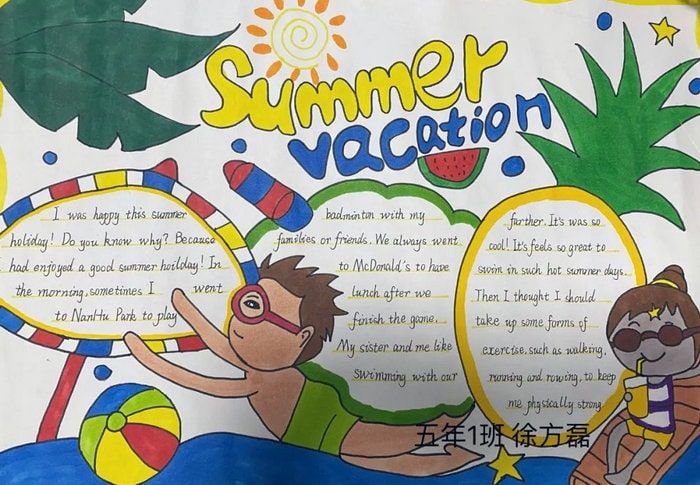 Summer
vacation
I was happy this summer
holiday! Do you know why? Because
had enjoyed a good summer hoilday! In
the morning, sometimes I went
to NanHu Park to play
badminton with my
families or friends. We always went
to McDonald's to have
lunch after we
finish the game.
My sister and me like
swimming with our
farther. It's was so
cool! It's feels so great to
swim in such hot summer days.
Then I thought I should
take up some forms of
exercise, such as walking,
running and rowing, to keep
me physically strong.
五年1班 徐方磊